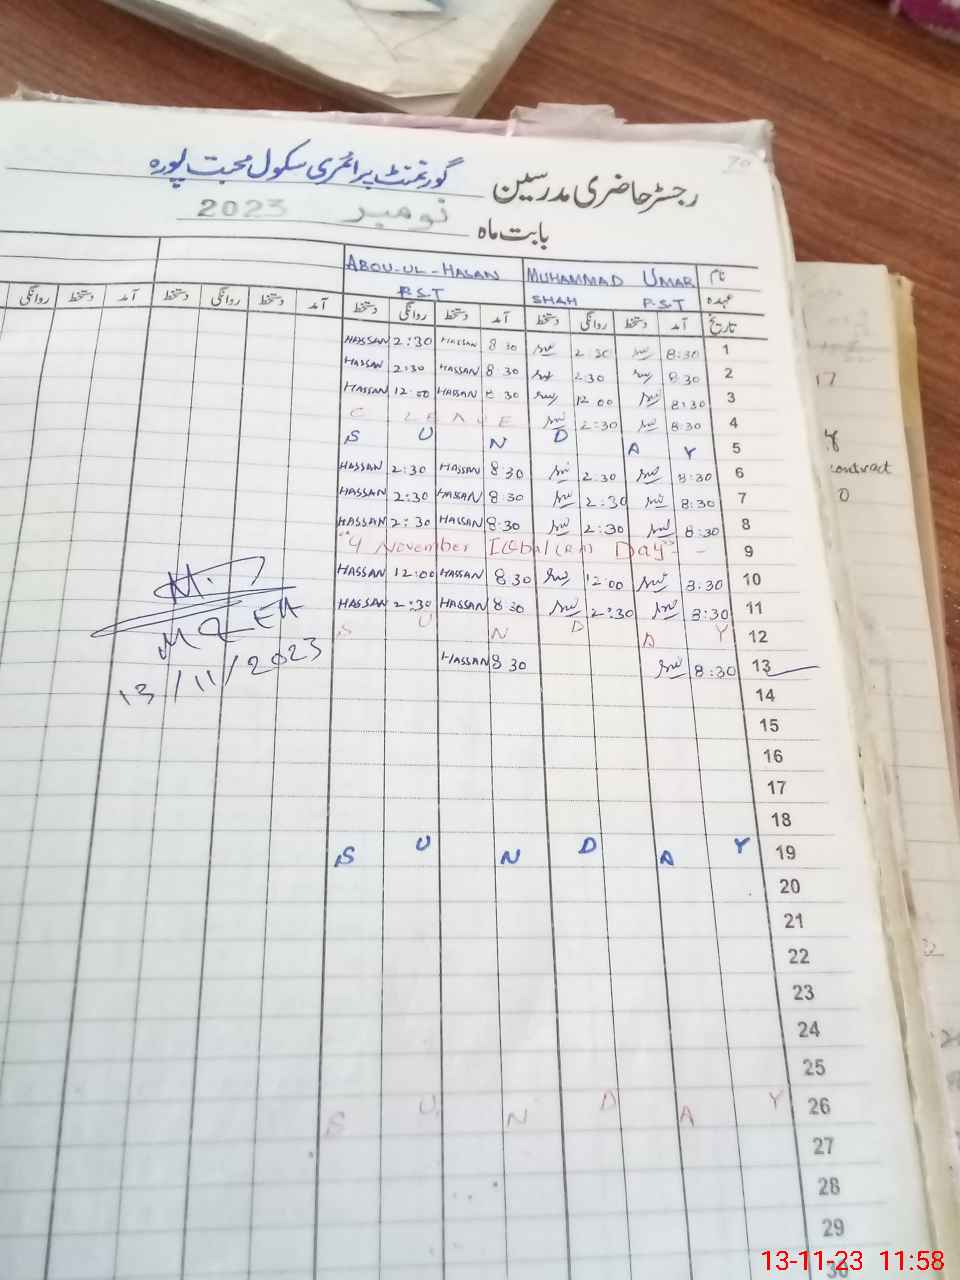 رجسٹر حاضری مدرسین گورنمنٹ پرائمری سکول محبت پورہ
بابت ماہ نومبر 2023
نام MUHAMMAD UMAR ABOU-UL-HASAN
عہدہ SHAH P.S.T P.S.T
تاریخ آمد دستخط روانگی دستخط آمد دستخط روانگی دستخط آمد دستخط روانگی دستخط آمد دستخط روانگی
1 8:30 2:30 8 30 HASSAN 2:30 HASSAN
2 8:30 2:30 8:30 HASSAN 2:30 HASSAN
3 8:30 12 00 8 30 HASSAN 12:00 HASSAN
4 8:30 2:30 C LEAVE
5 S U N D A Y
6 8:30 2:30 8 30 HASSAN 2:30 HASSAN
7 8:30 2:30 8:30 HASSAN 2:30 HASSAN
8 8:30 2:30 8:30 HASSAN 2:30 HASSAN
9 November Day
10 8:30 12:00 8 30 HASSAN 12:00 HASSAN
11 8:30 2:30 8 30 HASSAN 2:30 HASSAN
12 S U N D A Y
13 8:30 8 30 HASSAN
13/11/2023
14
15
16
17
18
19 S U N D A Y
20
21
22
23
24
25
26 S U N D A Y
27
28
29
30
17
contract
13-11-23 11:58